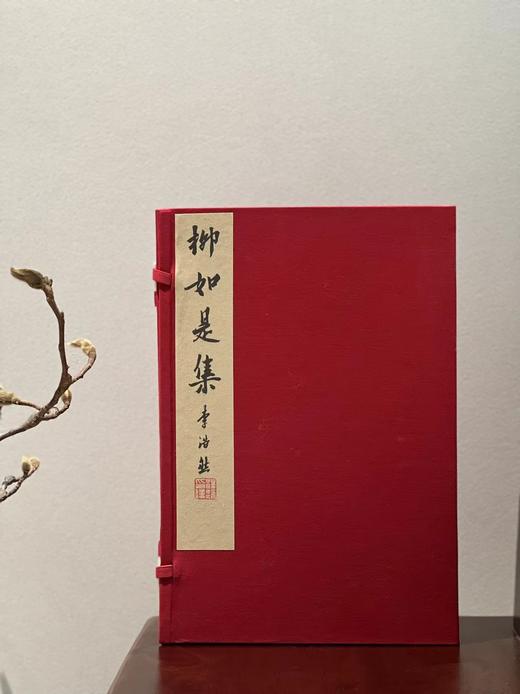 柳如是集
李浩然